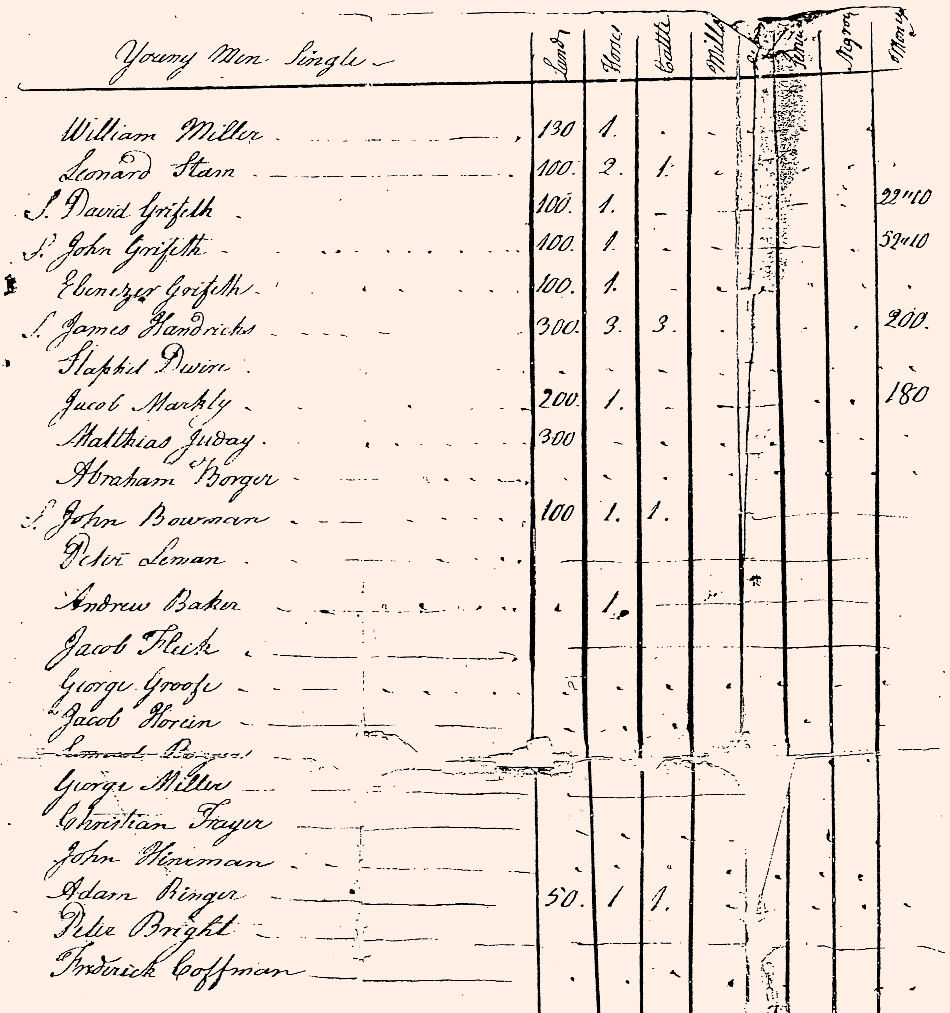 Young Men Single Land Horses Cattle Mills Negroes Money
William Miller 130 1.
Leonard Stam 100. 2. 1.
S. David Grifeth 100. 1. 22"10
S. John Grifeth 100. 1. 52"10
Ebenezer Grifeth 100. 1.
S. James Handricks 300. 3. 3. 200.
Stophel Dwire
Jacob Markly 200. 1. 180
Matthias Juday 300
Abraham Borger
S. John Bowman 100 1. 1.
Peter Leman
Andrew Baker 1.
Jacob Fleck
George Groose
Jacob Horein
George Miller
Christian Frayer
John Hineman
Adam Ringer 50. 1 1.
Peter Bright
Frederick Coffman